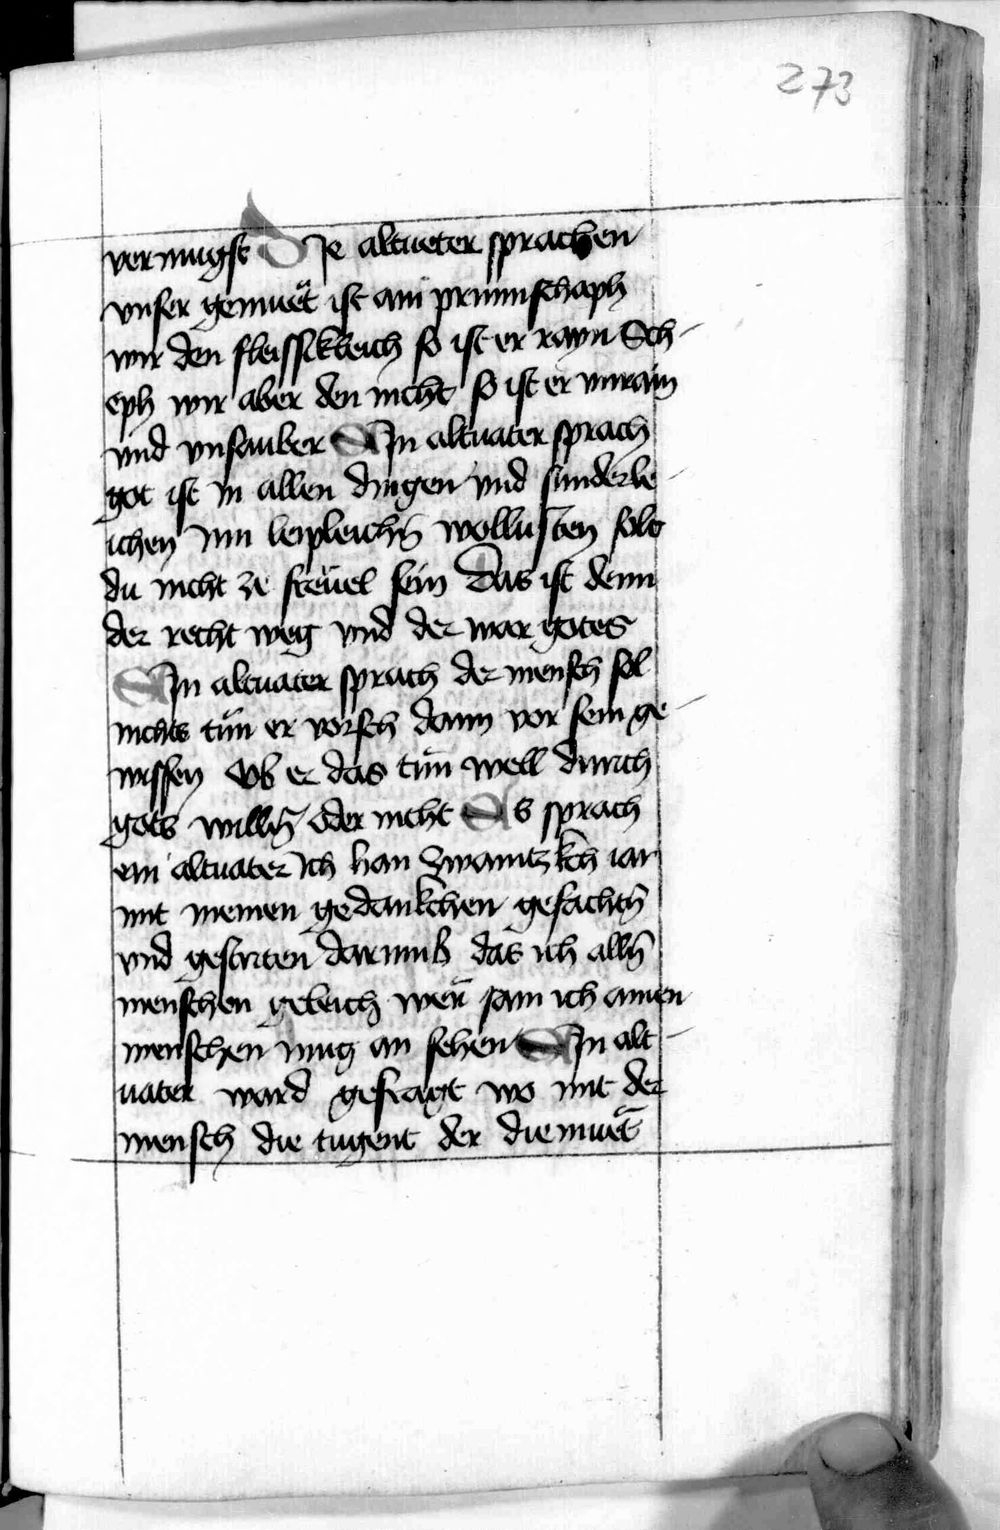 273
vermugst Die altueter sprachen
vnser gemuet ist ain prunn schaph
wir den fleissikleich so ist er rayn Sch-
eph wir aber den nicht so ist er vnrain
vnd vnsauber Ain altuater sprach
got ist in allen dingen vnd sunderle-
ichen inn leipleichn̄ wollusten solt
du nicht ze freuel sein Das ist denn
der recht weg vnd der war gotes
Ain altuater sprach der mensch sol
nichts tun er vorsch dann vor sein ge-
wissen Ob er das tun well durch
gots willn̄ oder nicht Es sprach
ein altuater Ich han zwaintzkch iar
mit meinen gedankchen gefachtn̄
vnd gestriten darumb das ich alln̄
menschen geleich wer sam ich ainen
menschen mug an sehen Ain alt-
uater ward gefragt wo mit der
mensch die tugent der diemuet